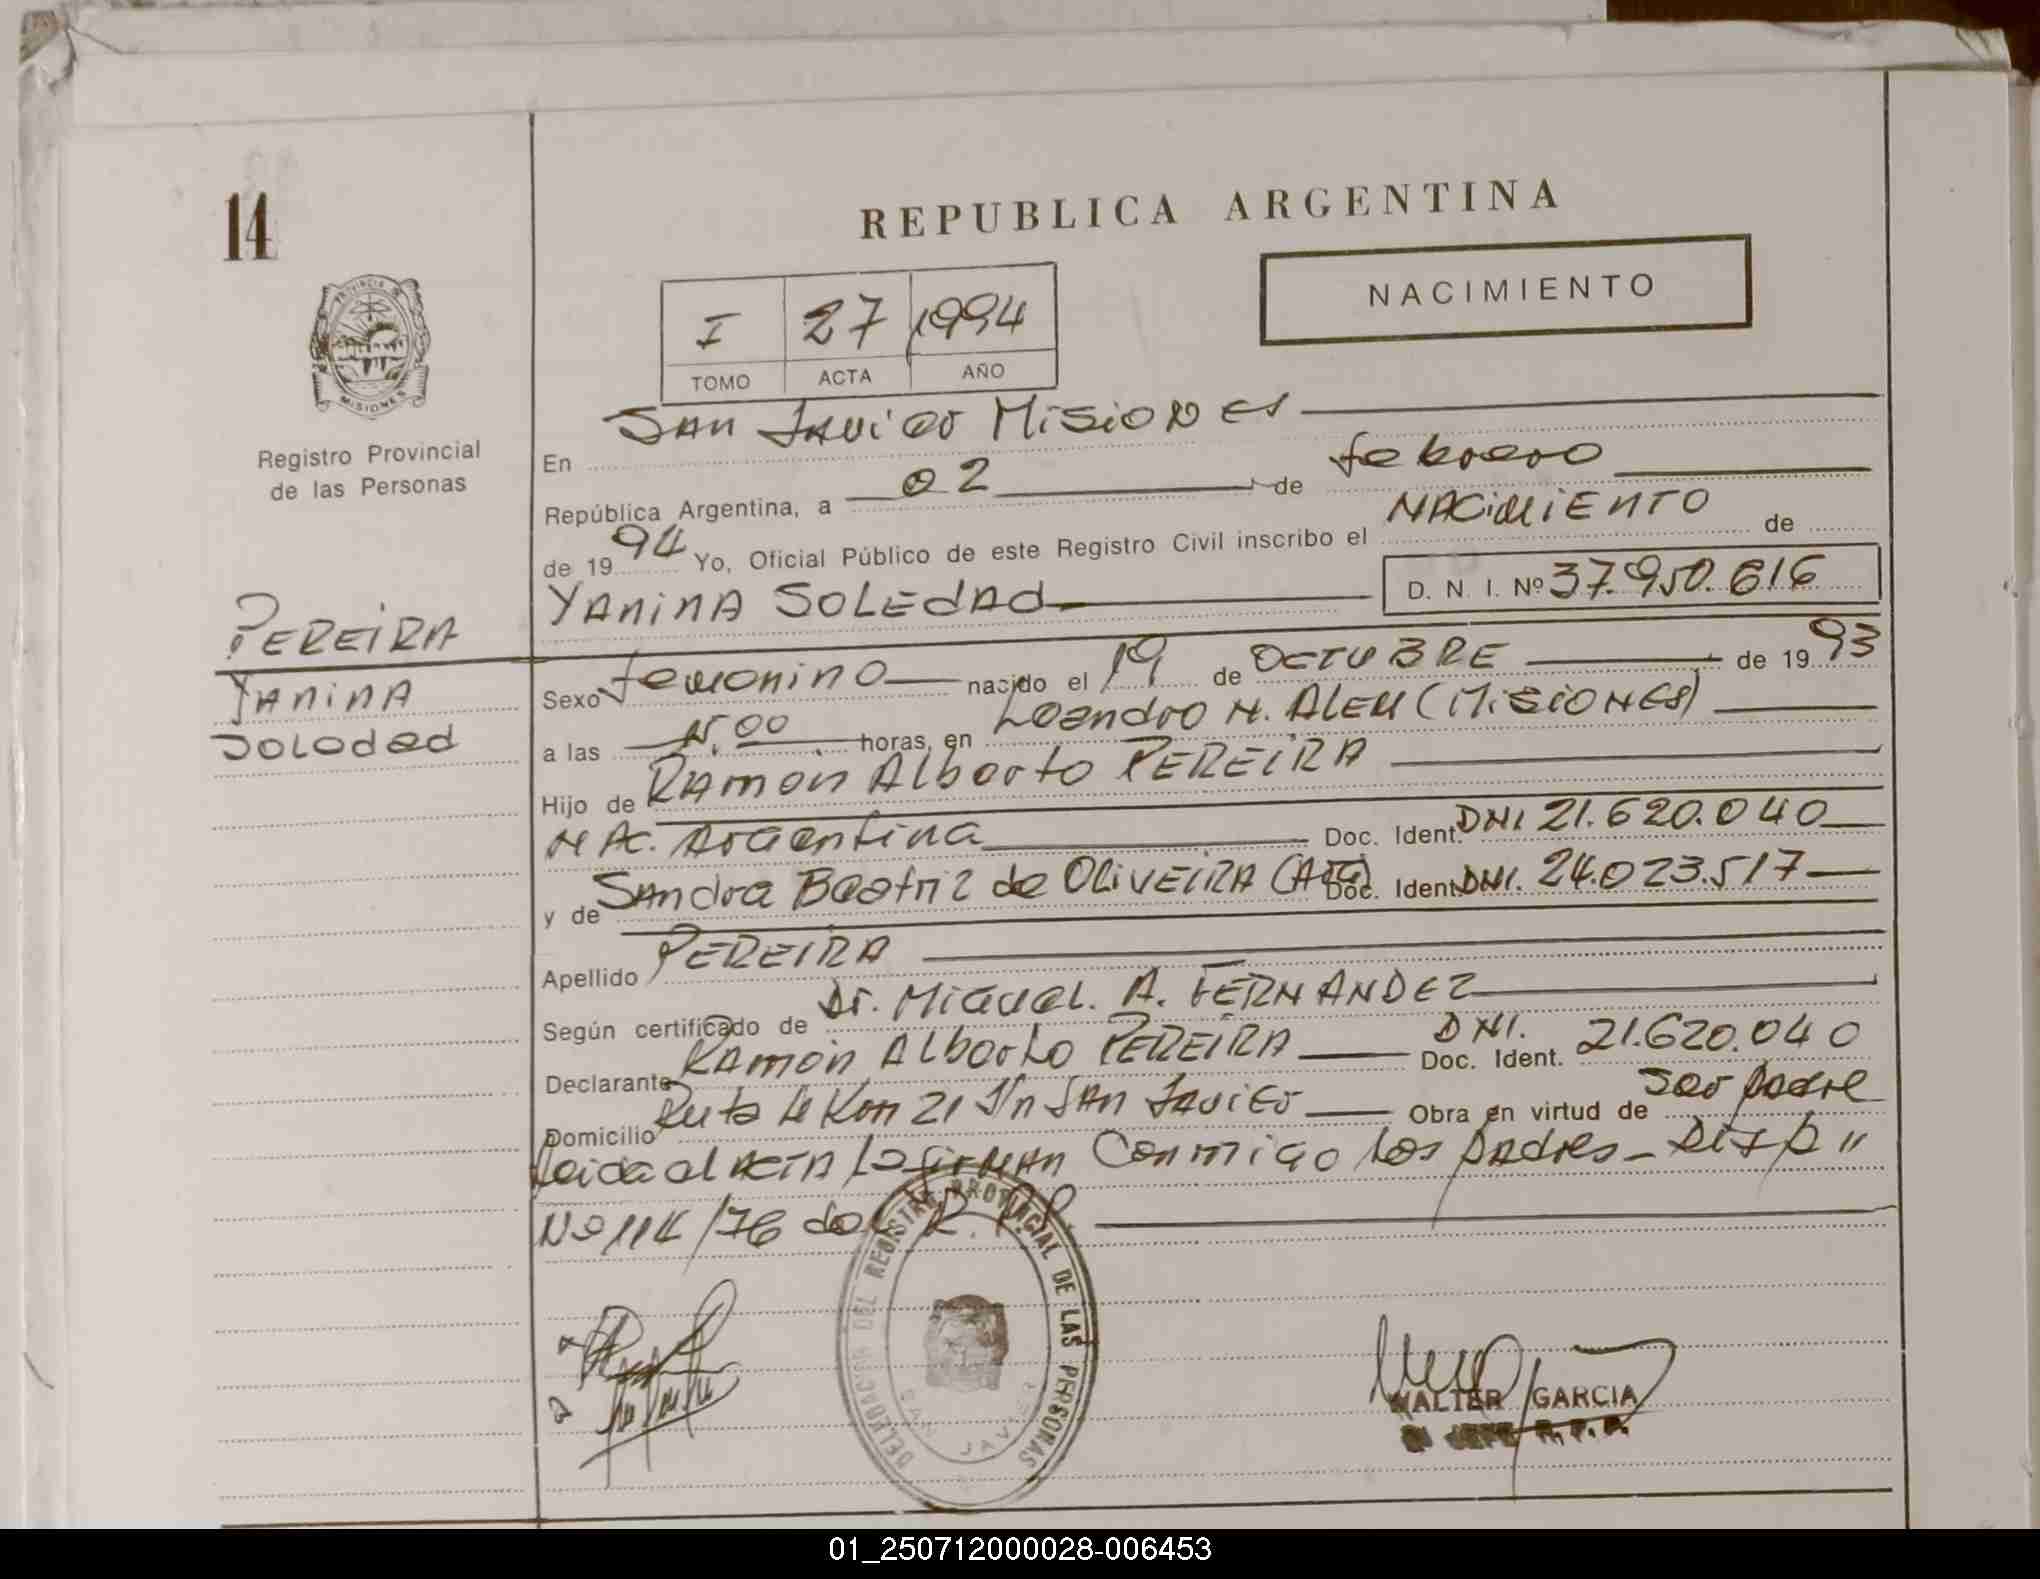 14
REPUBLICA ARGENTINA
NACIMIENTO
I 27 1994
TOMO ACTA AÑO
PROVINCIA DE
MISIONES
Registro Provincial
de las Personas
PEREIRA
YANINA
SOLEDAD
En SAN JAVIER MISIONES
República Argentina, a 02 de febrero
de 1994 Yo, Oficial Público de este Registro Civil inscribo el NACIMIENTO de
YANINA SOLEDAD D. N. I. Nº 37.950.616
Sexo femenino nacido el 19 de OCTUBRE de 1993
a las 15.00 horas, en Leandro N. ALEM (MISIONES)
Hijo de RAMON Alberto PEREIRA
NAC. Argentina Doc. Ident. DNI 21.620.040
y de SANDRA Beatriz de OLIVEIRA (Arg) Doc. Ident. DNI. 24.023.517
Apellido PEREIRA
Según certificado de Dr. Miguel. A. FERNANDEZ
Declarante RAMON Alberto PEREIRA Doc. Ident. DNI. 21.620.040
Domicilio Ruta 4 Km 21 S/n SAN JAVIER Obra en virtud de ser padre
Leida el ACTA la firman Conmigo los padres -
Nº 114/76 del R. P. P.
DELEGACION DEL REGISTRO PROVINCIAL DE LAS PERSONAS
SAN JAVIER
WALTER GARCIA
JEFE R.P.P.
01_250712000028-006453